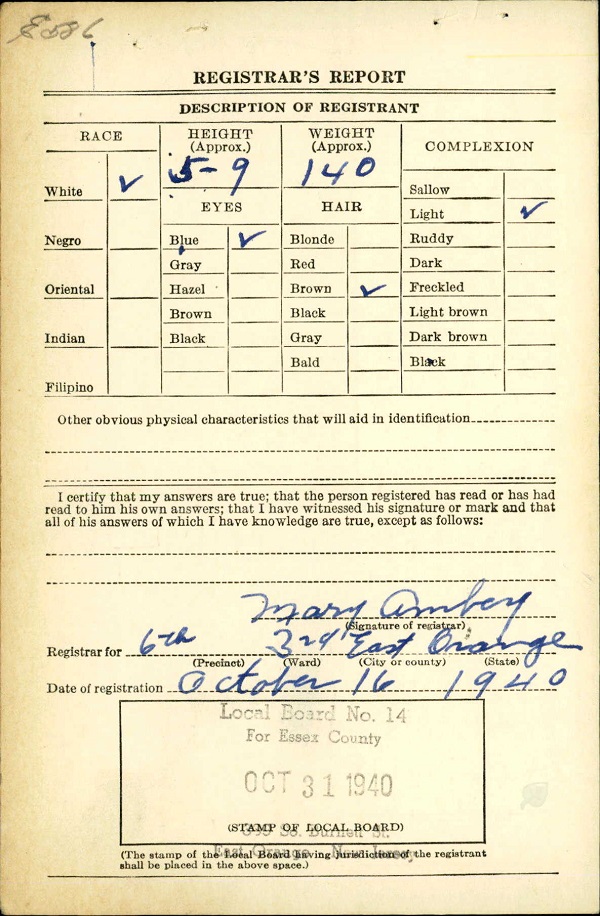 REGISTRAR'S REPORT
DESCRIPTION OF REGISTRANT
RACE
HEIGHT
(Approx.)
WEIGHT
(Approx.)
COMPLEXION
5-9
140
White ✓
Sallow
EYES
HAIR
Light ✓
Negro
Blue ✓
Blonde
Ruddy
Gray
Red
Dark
Oriental
Hazel
Brown ✓
Freckled
Brown
Black
Light brown
Indian
Black
Gray
Dark brown
Bald
Black
Filipino
Other obvious physical characteristics that will aid in identification
I certify that my answers are true; that the person registered has read or has had
read to him his own answers; that I have witnessed his signature or mark and that
all of his answers of which I have knowledge are true, except as follows:
Mary Ambey
(Signature of registrar)
Registrar for 6th 3rd East Orange
(Precinct) (Ward) (City or county) (State)
Date of registration October 16 1940
Local Board No. 14
For Essex County
OCT 31 1940
(STAMP OF LOCAL BOARD)
So. Burnett St.
East Orange, New Jersey
(The stamp of the Local Board having jurisdiction of the registrant
shall be placed in the above space.)